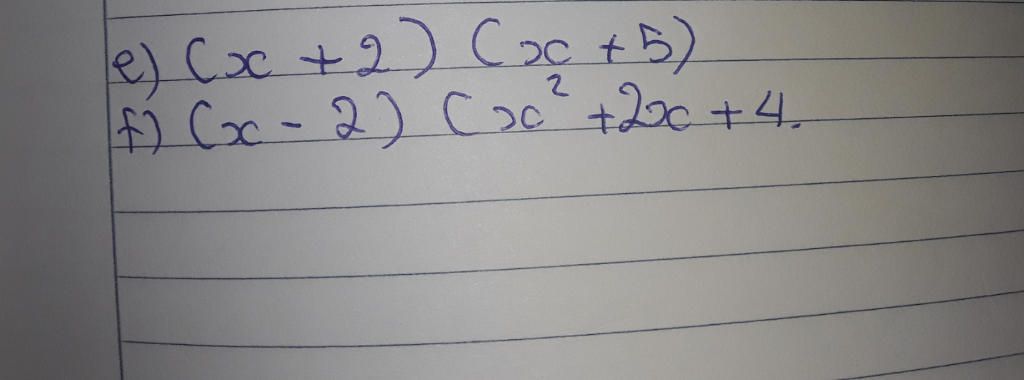 e) (x + 2) (x + 5)
f) (x - 2) (x² + 2x + 4.